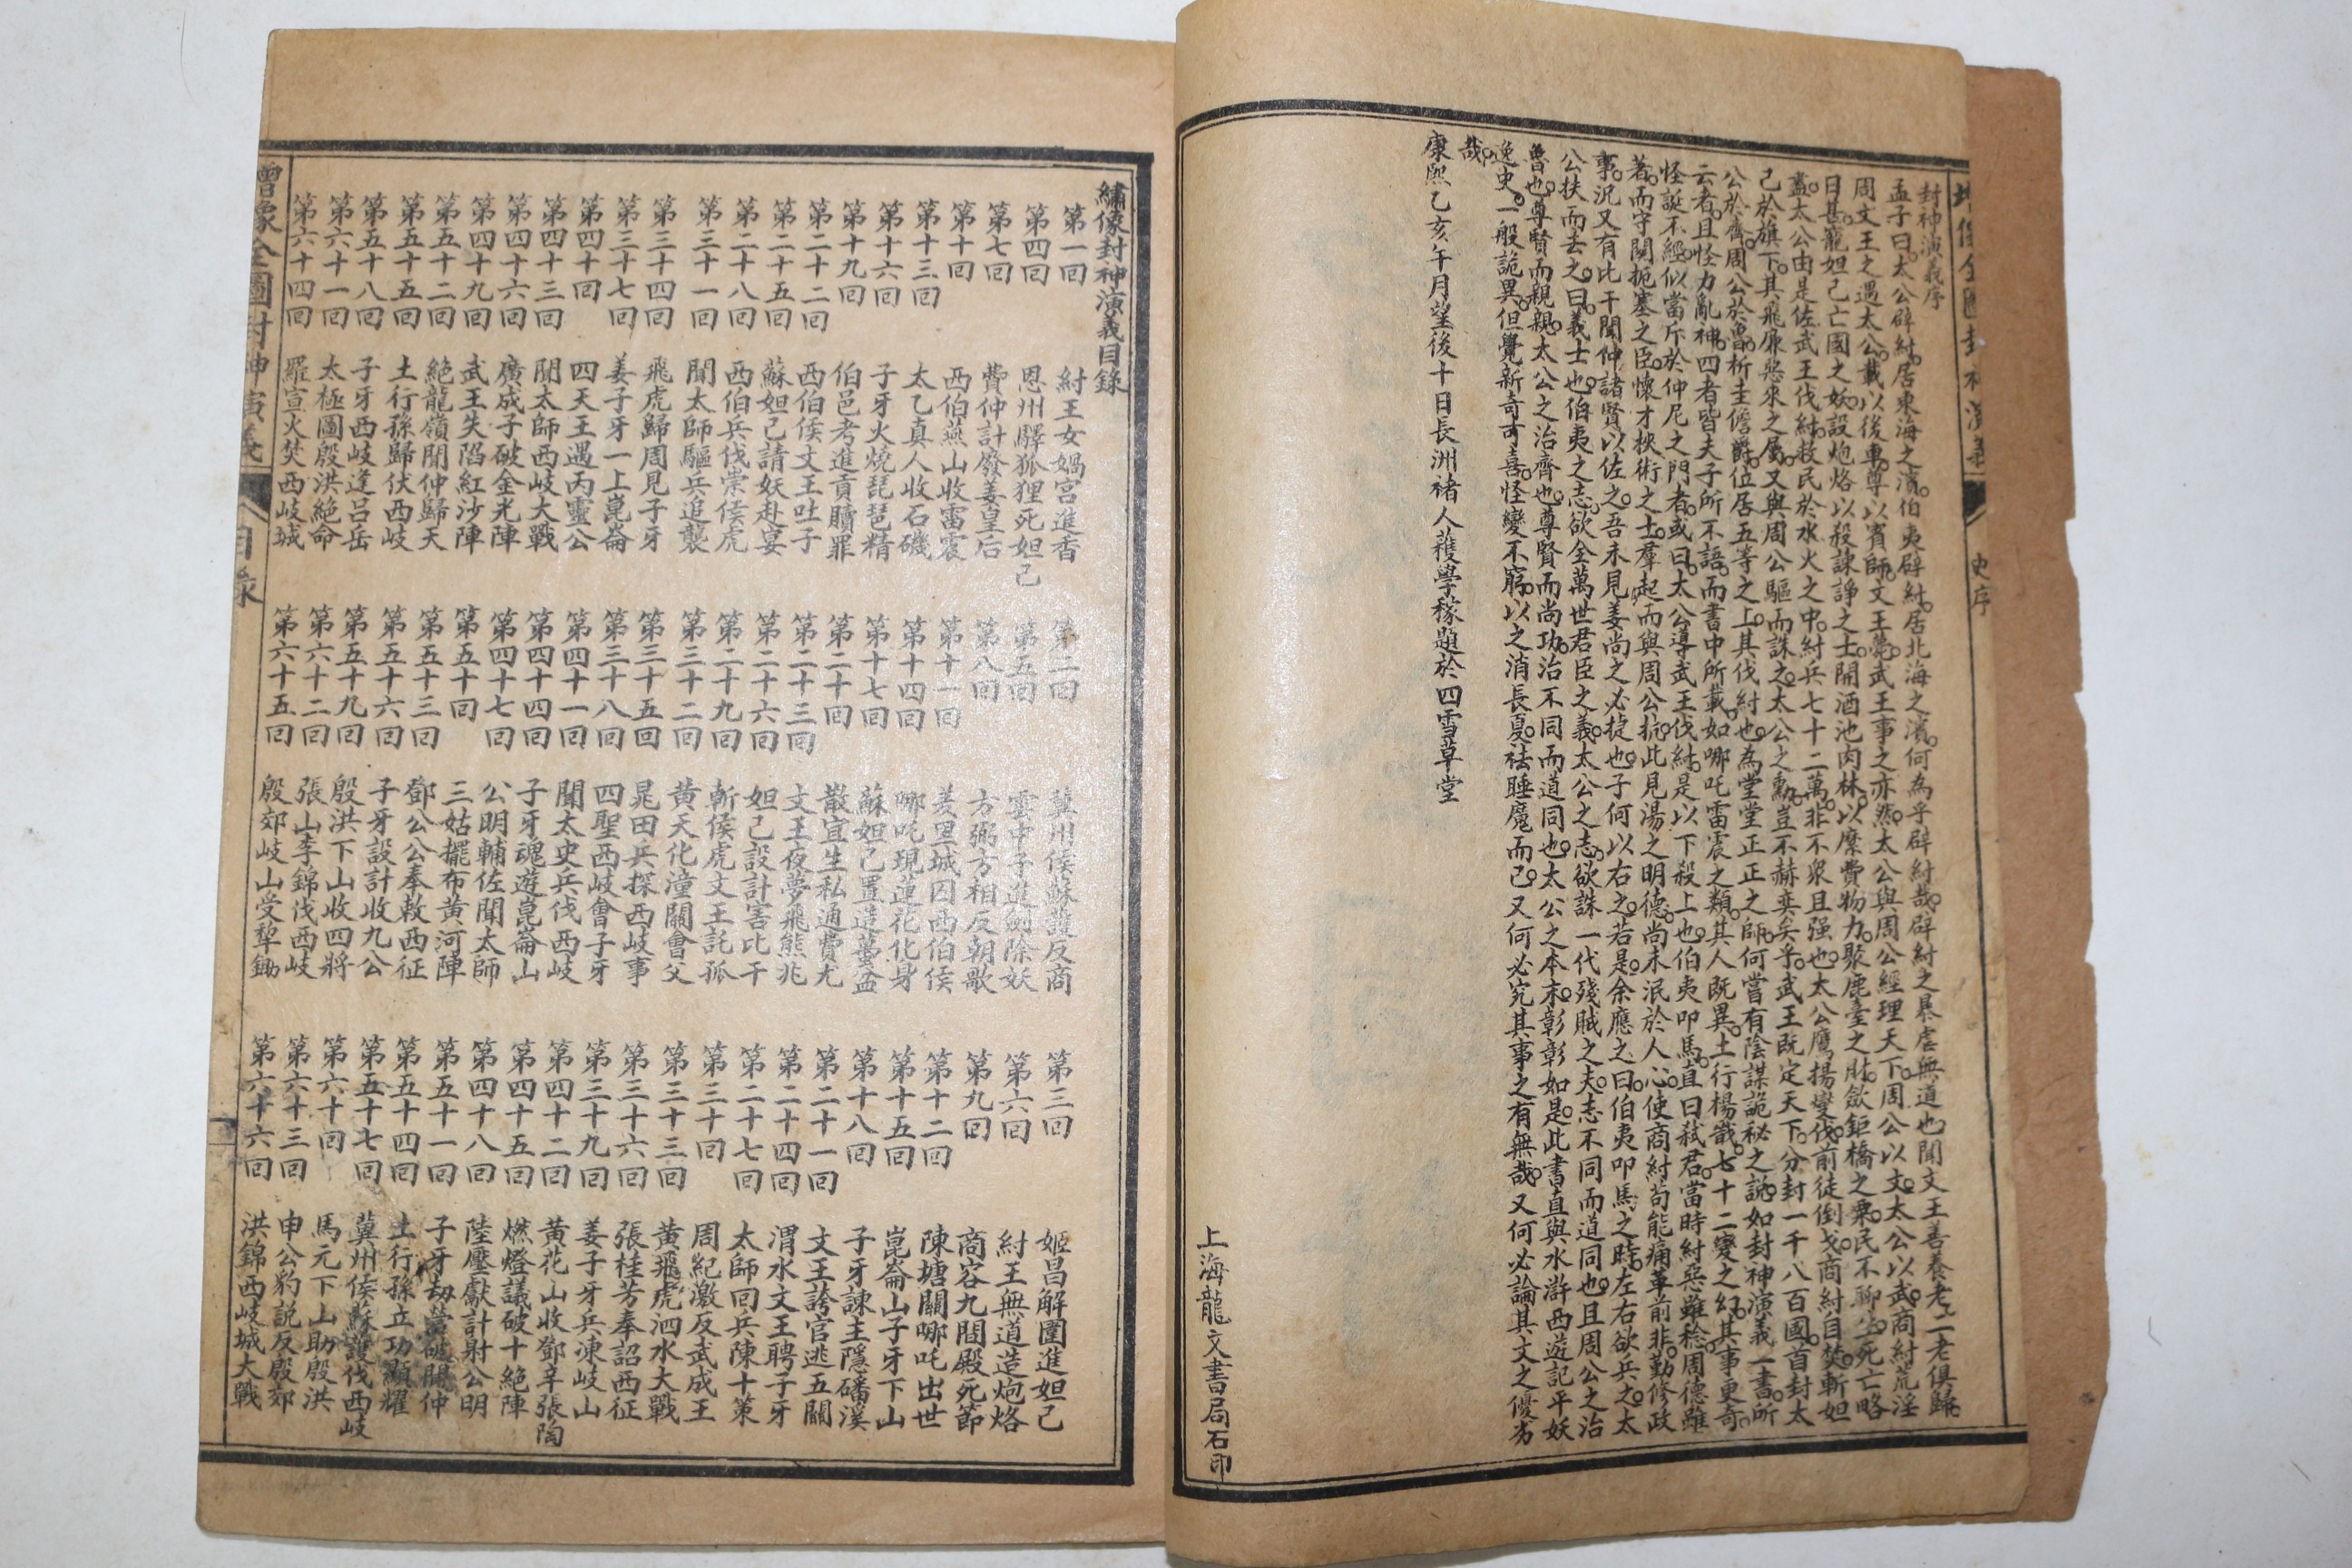 封神演義序
孟子曰太公辟紂居東海之濱伯夷辟紂居北海之濱何為乎辟紂哉辟紂之暴虐無道也聞文王善養老二老俱歸
周文王之遇太公載以後車尊以賓師文王薨武王事之亦然太公與周公經理天下周公以文太公以武商紂荒淫
日甚寵妲己亡國之妖設炮烙以殺諫諍之士開酒池肉林以糜費物力聚鹿臺之財斂鉅橋之粟民不聊生死亡略
盡太公由是佐武王伐紂救民於水火之中紂兵七十二萬非不衆且强也太公鷹揚燮伐前徒倒戈商紂自焚斬妲
己於旗下其飛廉惡來之屬又與周公驅而誅之太公之勳豈不赫奕矣乎武王既定天下分封一千八百國首封太
公於齊周公於魯析圭儋爵位居五等之上其伐紂也為堂堂正正之師何嘗有陰謀詭秘之說如封神演義一書所
云者且怪力亂神四者皆夫子所不語而書中所載如哪吒雷震之類其人既異土行楊戩七十二變之幻其事更奇
怪誕不經似當斥於仲尼之門者或曰太公導武王伐紂是以下殺上也伯夷叩馬直曰弒君當時紂惡雖稔周德雖
著而守關扼塞之臣懷才挾術之士羣起而與周公抗此見湯之明德尚未泯於人心使商紂苟能痛革前非勤修政
事況又有比干聞仲諸賢以佐之吾未見姜尚之必捷也子何以右之若是余應之曰伯夷叩馬之時左右欲兵之太
公扶而去之曰義士也伯夷之志欲全萬世君臣之義太公之志欲誅一代殘賊之夫志不同而道同也且周公之治
魯也尊賢而親親太公之治齊也尊賢而尚功治不同而道同也太公之本末彰彰如是此書直與水滸西遊記平妖
逸史一般詭異但覺新奇可喜怪變不窮以之消長夏祛睡魔而已又何必究其事之有無哉又何必論其文之優劣
哉
康熙乙亥午月望後十日長洲褚人穫學稼題於四雪草堂
上海龍文書局石印
繡像封神演義目錄
第一回 紂王女媧宮進香 第二回 冀州侯蘇護反商 第三回 姬昌解圍進妲己
第四回 恩州驛狐狸死妲己 第五回 雲中子進劍除妖 第六回 紂王無道造炮烙
第七回 費仲計廢姜皇后 第八回 方弼方相反朝歌 第九回 商容九間殿死節
第十回 西伯燕山收雷震 第十一回 羑里城囚西伯侯 第十二回 陳塘關哪吒出世
第十三回 太乙真人收石磯 第十四回 哪吒現蓮花化身 第十五回 崑崙山子牙下山
第十六回 子牙火燒琵琶精 第十七回 蘇妲己置造蠆盆 第十八回 子牙諫主隱磻溪
第十九回 伯邑考進貢贖罪 第二十回 散宜生私通費尤 第二十一回 文王誇官逃五關
第二十二回 西伯侯文王吐子 第二十三回 文王夜夢飛熊兆 第二十四回 渭水文王聘子牙
第二十五回 蘇妲己請妖赴宴 第二十六回 妲己設計害比干 第二十七回 太師回兵陳十策
第二十八回 西伯兵伐崇侯虎 第二十九回 斬侯虎文王託孤 第三十回 周紀激反武成王
第三十一回 聞太師驅兵追襲 第三十二回 黃天化潼關會父 第三十三回 黃飛虎泗水大戰
第三十四回 飛虎歸周見子牙 第三十五回 晁田兵探西岐事 第三十六回 張桂芳奉詔西征
第三十七回 姜子牙一上崑崙 第三十八回 四聖西岐會子牙 第三十九回 姜子牙兵凍岐山
第四十回 四天王遇丙靈公 第四十一回 聞太史兵伐西岐 第四十二回 黃花山收鄧辛張陶
第四十三回 聞太師西岐大戰 第四十四回 子牙魂遊崑崙山 第四十五回 燃燈議破十絕陣
第四十六回 廣成子破金光陣 第四十七回 公明輔佐聞太師 第四十八回 陸壓獻計射公明
第四十九回 武王失陷紅沙陣 第五十回 三姑擺布黃河陣 第五十一回 子牙劫營破聞仲
第五十二回 絕龍嶺聞仲歸天 第五十三回 鄧公公奉敕西征 第五十四回 土行孫立功顯耀
第五十五回 土行孫歸伏西岐 第五十六回 子牙設計收九公 第五十七回 冀州侯蘇護伐西岐
第五十八回 子牙西岐逢呂岳 第五十九回 殷洪下山收四將 第六十回 馬元下山助殷洪
第六十一回 太極圖殷洪絕命 第六十二回 張山李錦伐西岐 第六十三回 申公豹說反殷郊
第六十四回 羅宣火焚西岐城 第六十五回 殷郊岐山受犁鋤 第六十六回 洪錦西岐城大戰